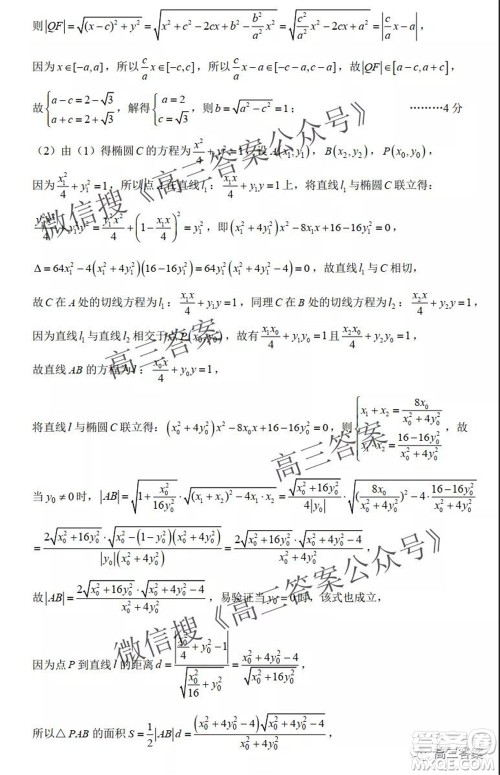 则|QF|=√((x-c)²+y²)=√(x²+c²-2cx+b²-(b²/a²)x²)=√((c²/a²)x²-2cx+a²)=|(c/a)x-a|,
因为x∈[-a,a],所以(c/a)x∈[-c,c],所以(c/a)x-a∈[-c-a,c-a],故|QF|∈[a-c,a+c],
故{a-c=2-√3, a+c=2+√3,解得{a=2, c=√3,则b=√(a²-c²)=1; ………4分
(2)由(1)得椭圆C的方程为x²/4+y²=1,设A(x₁,y₁),B(x₂,y₂),P(x₀,y₀),
因为x₁²/4+y₁²=1,所以点A在直线l₁:x₁x/4+y₁y=1上,将直线l₁与椭圆C联立得:
y₁²x²/4+(1-x₁x/4)²=y₁²,即(x₁²+4y₁²)x²-8x₁x+16-16y₁²=0,
Δ=64x₁²-4(x₁²+4y₁²)(16-16y₁²)=64y₁²(x₁²+4y₁²-4)=0,故直线l₁与C相切,
故C在A处的切线方程为l₁:x₁x/4+y₁y=1,同理C在B处的切线方程为l₂:x₂x/4+y₂y=1,
因为直线l₁与直线l₂相交于点P(x₀,y₀),故有x₁x₀/4+y₁y₀=1且x₂x₀/4+y₂y₀=1,
故直线AB的方程为l:x₀x/4+y₀y=1,
将直线l与椭圆C联立得:(x₀²+4y₀²)x²-8x₀x+16-16y₀²=0,则{x₁+x₂=8x₀/(x₀²+4y₀²), x₁x₂=(16-16y₀²)/(x₀²+4y₀²),故
当y₀≠0时,|AB|=√(1+x₀²/(16y₀²))·√((x₁+x₂)²-4x₁·x₂)=√(x₀²+16y₀²)/(4|y₀|)·√((8x₀/(x₀²+4y₀²))²-4·(16-16y₀²)/(x₀²+4y₀²))
=2√(x₀²+16y₀²)·√(x₀²-(1-y₀²)(x₀²+4y₀²))/(|y₀|(x₀²+4y₀²))=2√(x₀²+16y₀²)·√(x₀²+4y₀²-4)/(x₀²+4y₀²),
故|AB|=2√(x₀²+16y₀²)·√(x₀²+4y₀²-4)/(x₀²+4y₀²),易验证当y₀=0时,该式也成立,
因为点P到直线l的距离d=|x₀²/4+y₀²-1|/√(x₀²/16+y₀²)=(x₀²+4y₀²-4)/√(x₀²+16y₀²),
所以△PAB的面积S=½|AB|d=(x₀²+4y₀²-4)√(x₀²+4y₀²-4)/(x₀²+4y₀²),
微信搜《高三答案公众号》
高三答案
高三答案
微信搜《高三答案公众号》
高三答案